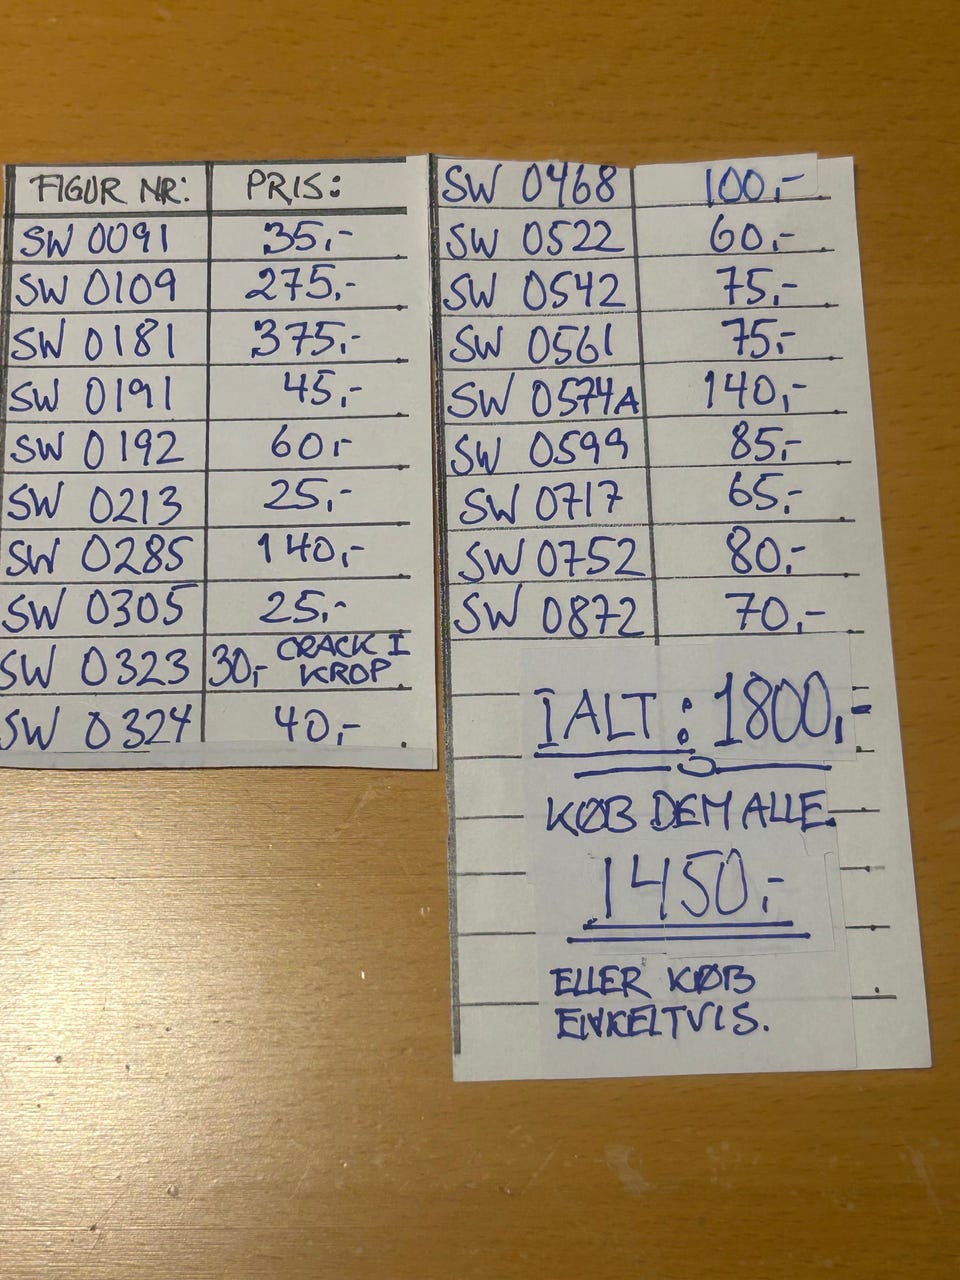 FIGUR NR: PRIS:
SW 0091 35,-
SW 0109 275,-
SW 0181 375,-
SW 0191 45,-
SW 0192 60,-
SW 0213 25,-
SW 0285 140,-
SW 0305 25,-
SW 0323 30,- CRACK I
KROP
SW 0324 40,-
SW 0468 100,-
SW 0522 60,-
SW 0542 75,-
SW 0561 75,-
SW 0574A 140,-
SW 0599 85,-
SW 0717 65,-
SW 0752 80,-
SW 0872 70,-
I ALT: 1800,-
KØB DEM ALLE
1450,-
ELLER KØB
ENKELTVIS.